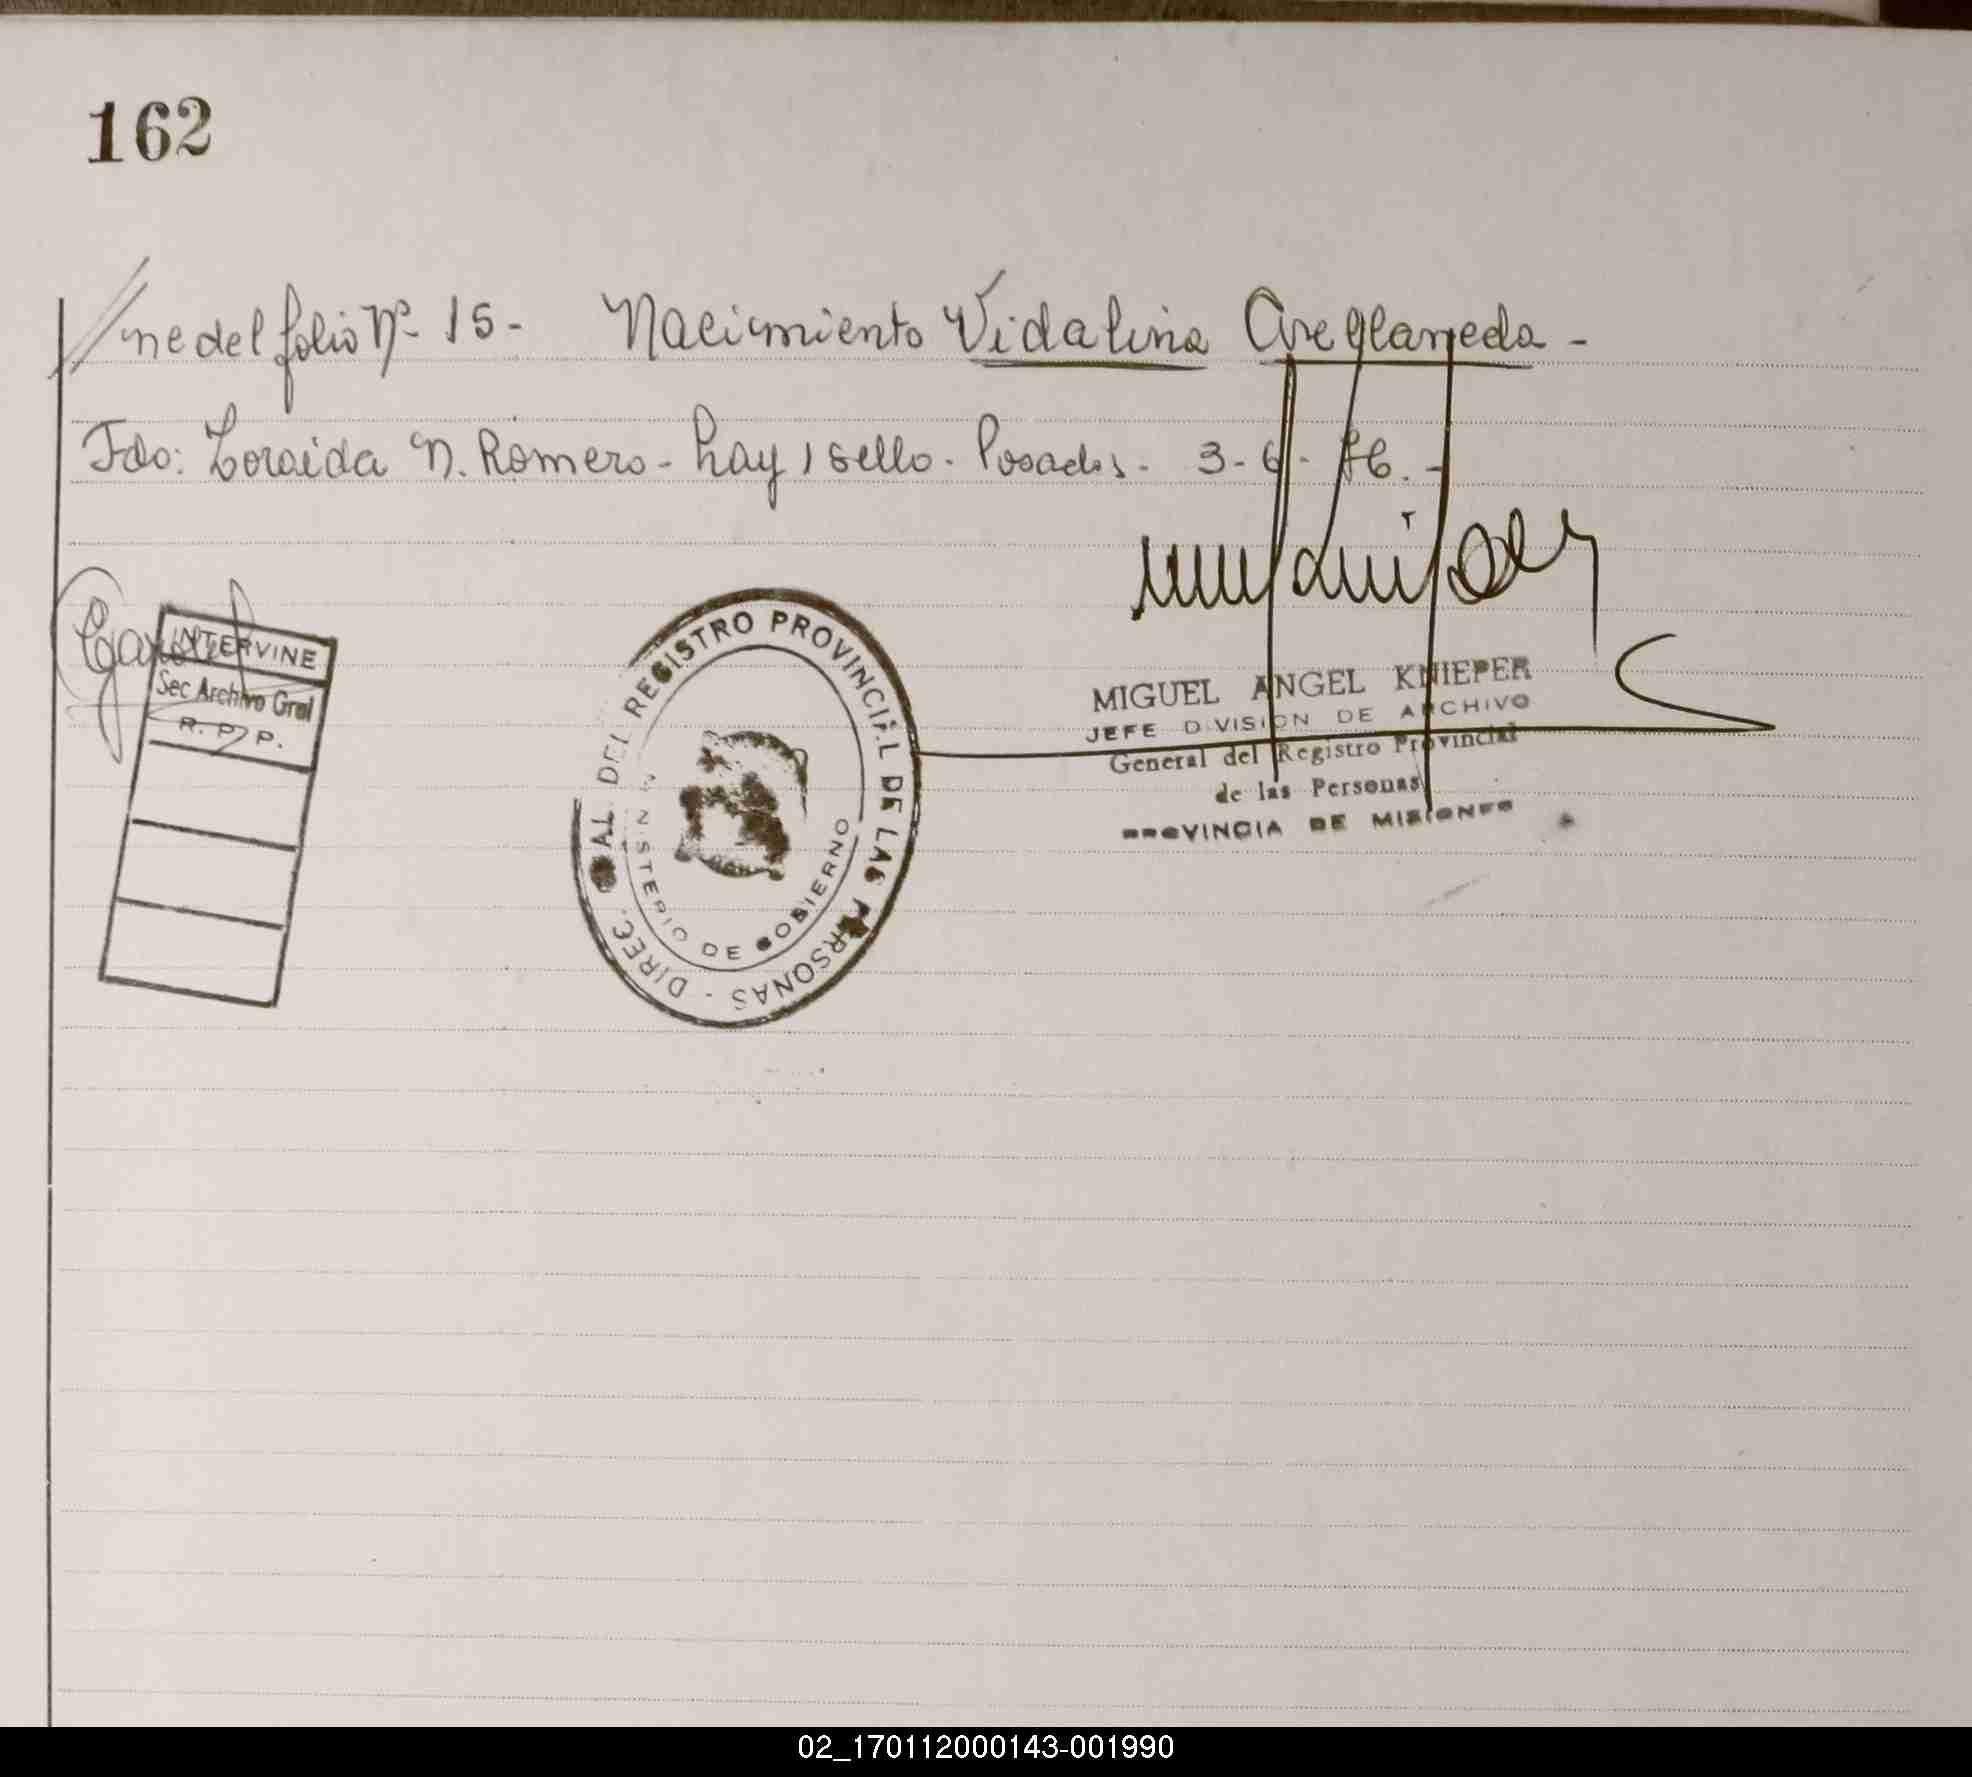 162
//ne del folio Nº 15- Nacimiento Vidalina Avellaneda -
Fdo: Zoraida N. Romero - hay 1 sello - Posadas - 3-6-86.-
INTERVINE
Sec Archivo Gral
R. P. P.
DIREC. GRAL. DEL REGISTRO PROVINCIAL DE LAS PERSONAS -
MINISTERIO DE GOBIERNO
MIGUEL ANGEL KNIEPER
JEFE DIVISION DE ARCHIVO
General del Registro Provincial
de las Personas
PROVINCIA DE MISIONES
02_170112000143-001990